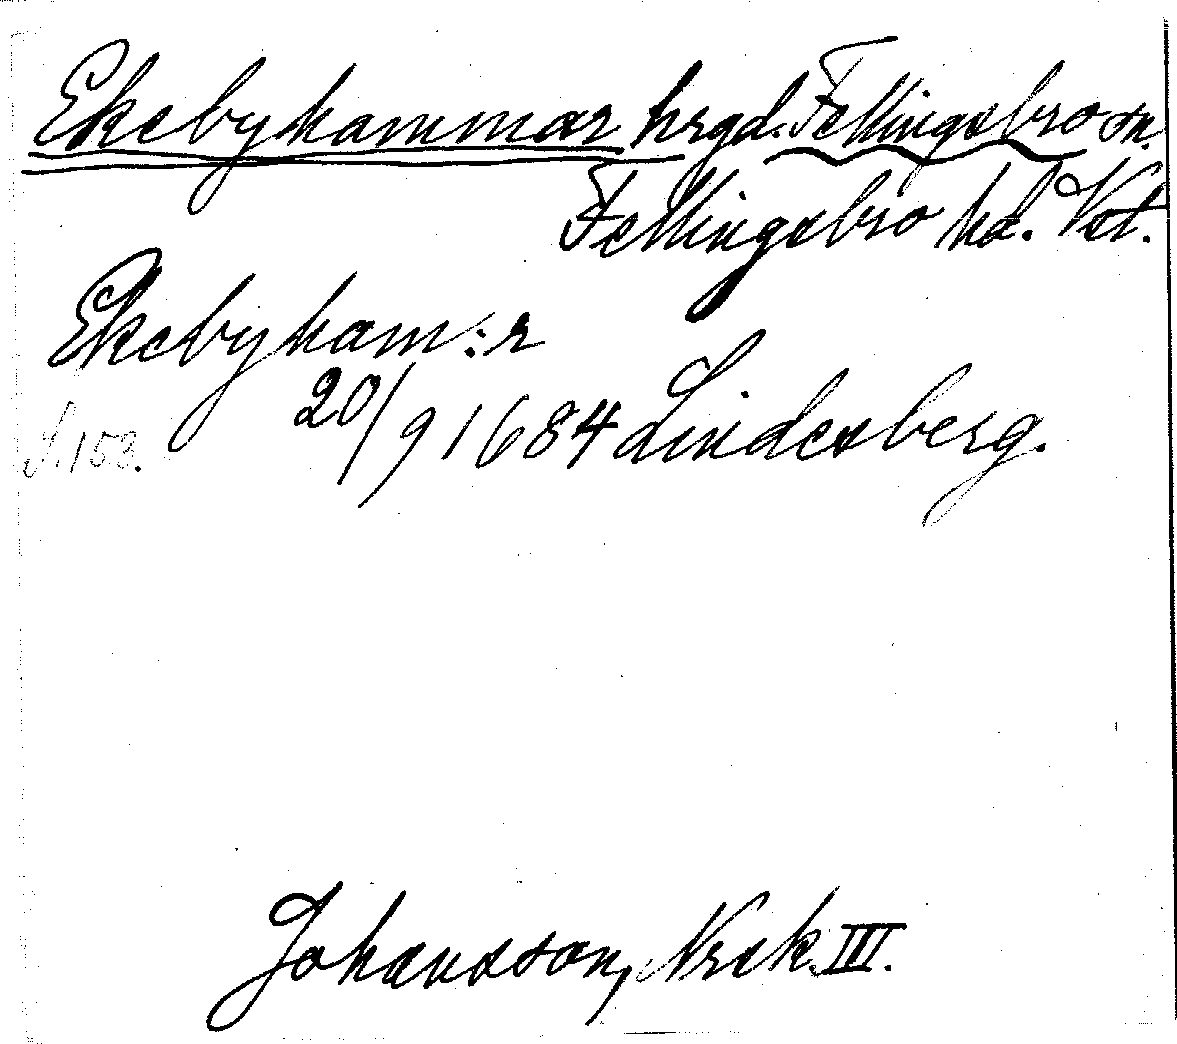 Ekebyhammar hrgd. Fellingsbro sn.
Fellingsbro hd. Vst.
Ekebyham:r
20/9 1684 Lindesberg.
S. 153.
Johansson, Nrsk. III.